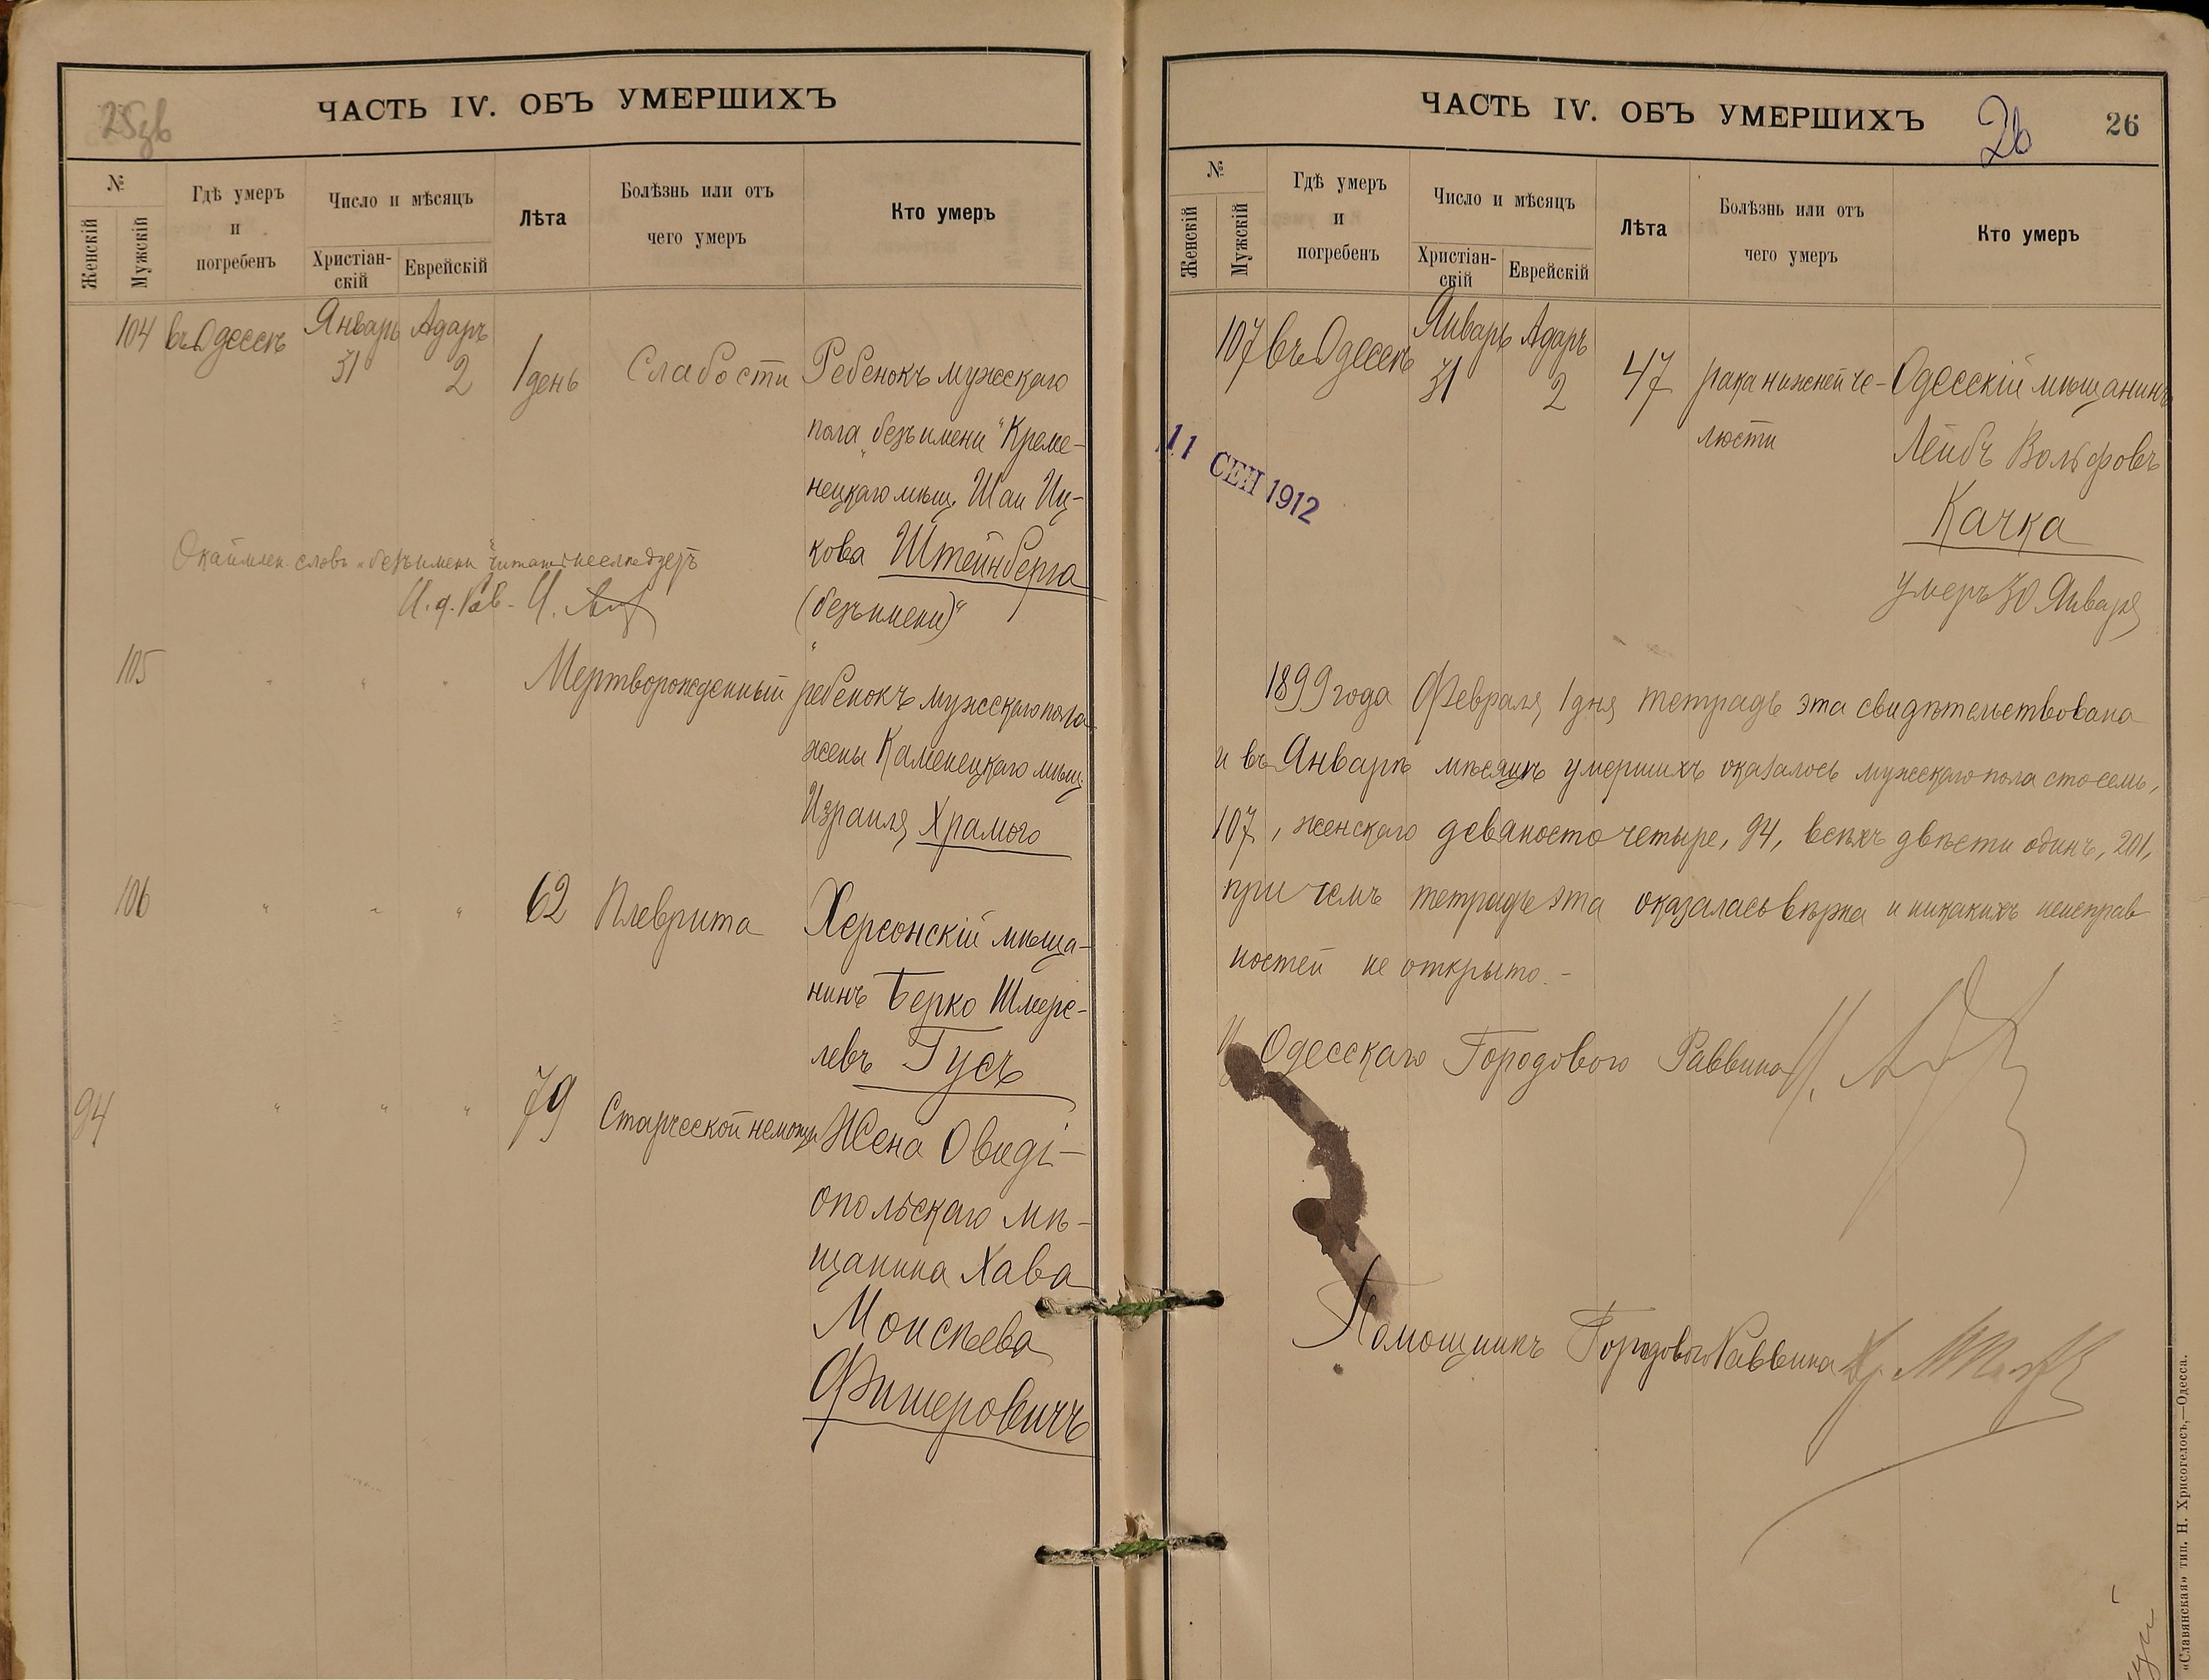 25зв
ЧАСТЬ IV. ОБЪ УМЕРШИХЪ
№
Женскій
Мужскій
Гдѣ умеръ
и
погребенъ
Число и мѣсяцъ
Христіан-
скій
Еврейскій
Лѣта
Болѣзнь или отъ
чего умеръ
Кто умеръ
104 въ Одессѣ Январь 31 Адаръ 2 1 день Слабости Ребенокъ мужскаго
пола „безъ имени“ Креме-
нецкаго мѣщ. Шаи Иц-
кова Штейнберга
(безъ имени)“
Окаймлен. словъ „безъ имени“ читать не слѣдуетъ
И. д. Рав.
105 " " " Мертворожденный ребенокъ мужскаго пола
жены Каменецкаго мѣщ.
Израиля Храмого
106 " " " 62 Плеврита Херсонскій мѣща-
нинъ Берко Шмере-
левъ Гусъ
94 " " " 79 Старческой немощи Жена Овиді-
опольскаго мѣ-
щанина Хава
Моисѣева
Фишеровичъ
ЧАСТЬ IV. ОБЪ УМЕРШИХЪ
26
26
№
Женскій
Мужскій
Гдѣ умеръ
и
погребенъ
Число и мѣсяцъ
Христіан-
скій
Еврейскій
Лѣта
Болѣзнь или отъ
чего умеръ
Кто умеръ
107 въ Одессѣ Январь 31 Адаръ 2 47 рака нижней че- Одесскій мѣщанинъ
люсти Лейбъ Вольфовъ
11 СЕН 1912
Качка
умеръ 30 Января
1899 года Февраля 1 дня тетрадь эта свидѣтельствована
и въ Январѣ мѣсяцѣ умершихъ оказалось мужскаго пола сто семь,
107, женскаго девяносто четыре, 94, всѣхъ двѣсти одинъ, 201,
при чемъ тетрадь эта оказалась вѣрна и никакихъ неисправ
ностей не открыто. -
Одесскаго Городового Раввина
Помощникъ Городового Раввина
«Славянская» тип. Н. Хрисогелосъ,—Одесса.